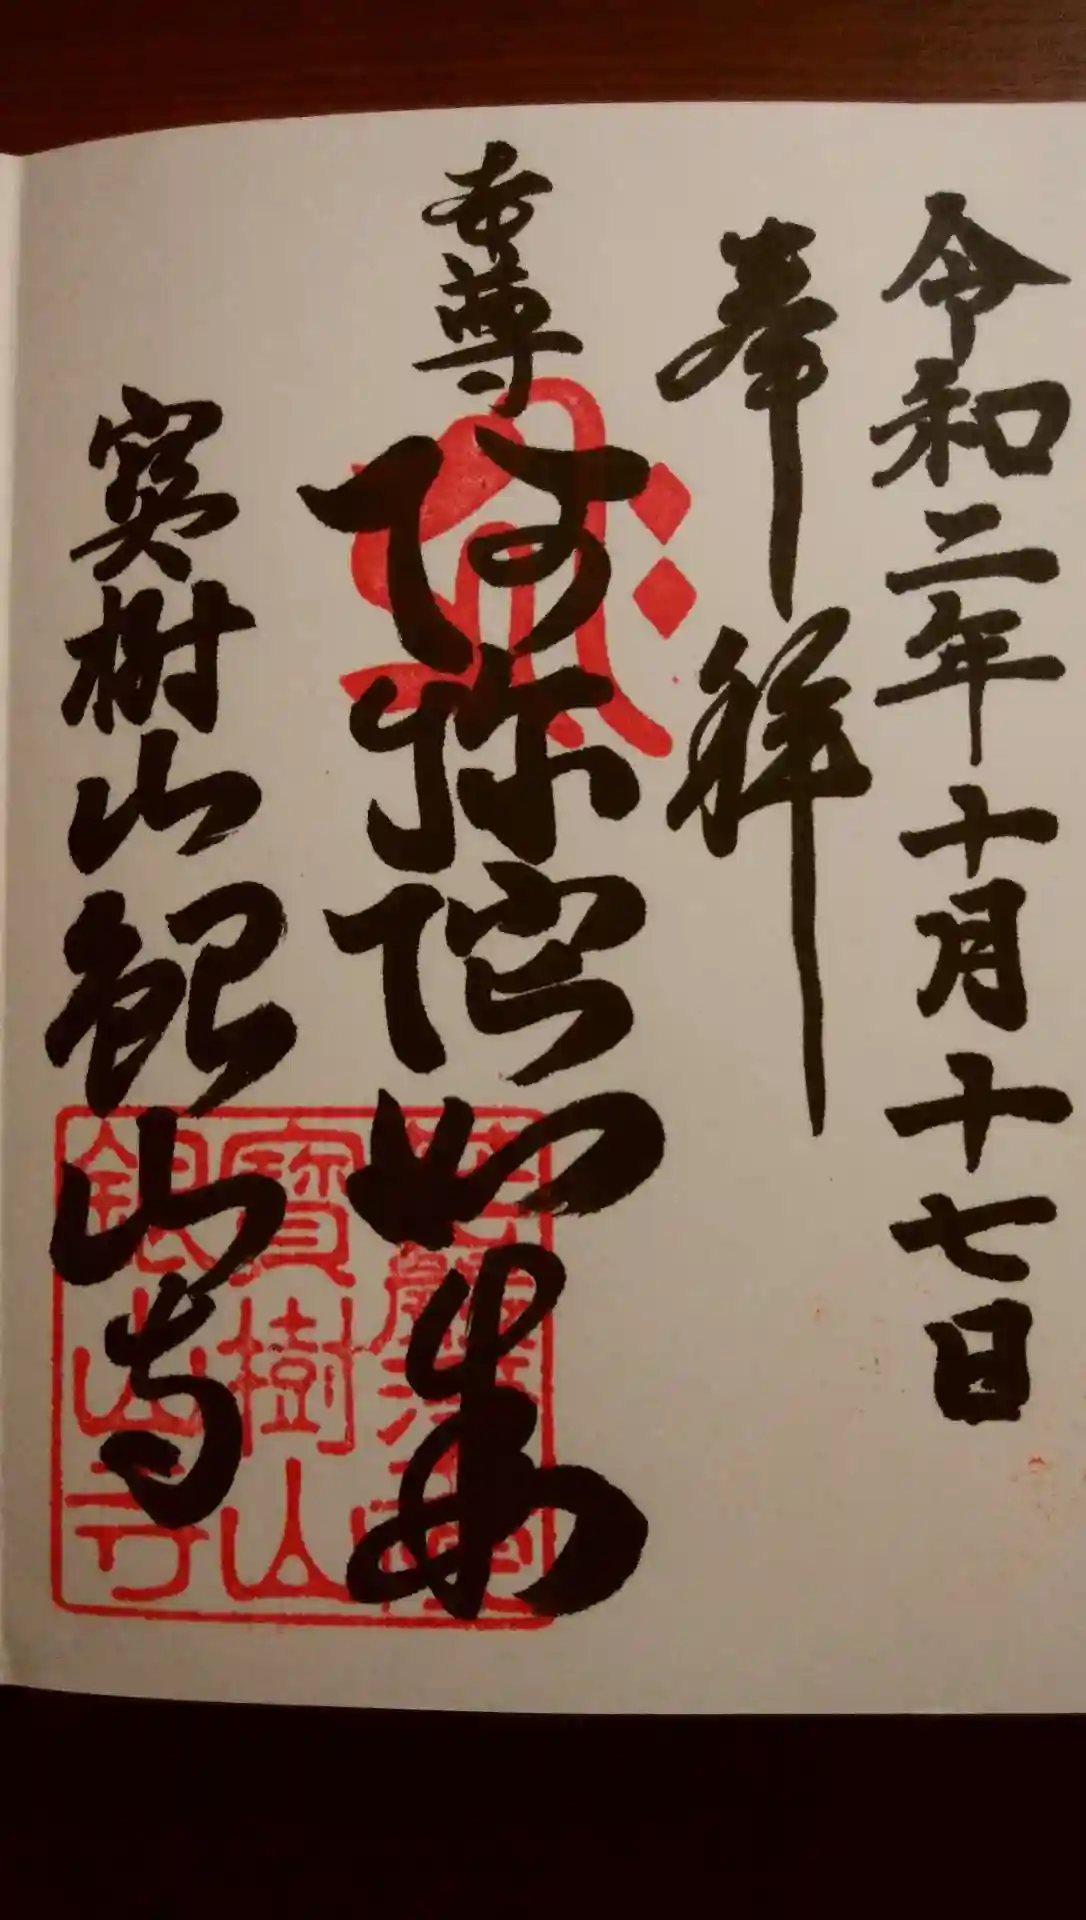 令和二年十月十七日
奉拝
本尊
阿弥陀如来
宝樹山銀山寺
寶樹山
銀山寺